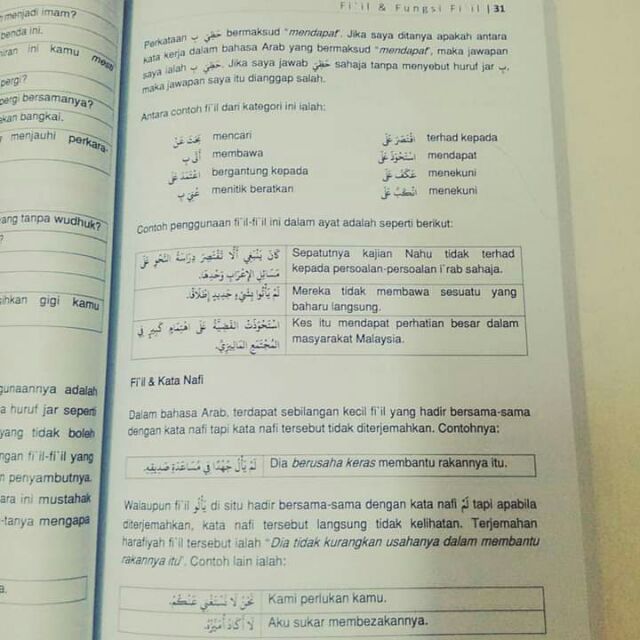 menjadi imam?
benda ini.
ini kamu
pergi?
pergi bersamanya?
bangkai.
menjauhi perkara-
yang tanpa wudhuk?
gigi kamu
adalah
huruf jar seperti
yang tidak boleh
fi'il-fi'il yang
penyambutnya.
ini mustahak
-tanya mengapa
Fi'il & Fungsi Fi'il | 31
Perkataan حَظِيَ بِـ bermaksud "mendapat". Jika saya ditanya apakah antara
kata kerja dalam bahasa Arab yang bermaksud "mendapat", maka jawapan
saya ialah حَظِيَ بِـ. Jika saya jawab حَظِيَ sahaja tanpa menyebut huruf jar بِـ,
maka jawapan saya itu dianggap salah.
Antara contoh fi'il dari kategori ini ialah:
بَحَثَ عَنْ mencari اقْتَصَرَ عَلَى terhad kepada
أَتَى بِـ membawa اسْتَحْوَذَ عَلَى mendapat
اعْتَمَدَ عَلَى bergantung kepada عَكَفَ عَلَى menekuni
عُنِيَ بِـ menitik beratkan انْكَبَّ عَلَى menekuni
Contoh penggunaan fi'il-fi'il ini dalam ayat adalah seperti berikut:
كَانَ يَنْبَغِي أَلَّا تَقْتَصِرَ دِرَاسَةُ النَّحْوِ عَلَى Sepatutnya kajian Nahu tidak terhad
مَسَائِلِ الإِعْرَابِ وَحْدَهَا. kepada persoalan-persoalan i'rab sahaja.
لَمْ يَأْتُوا بِشَيْءٍ جَدِيدٍ إِطْلَاقًا. Mereka tidak membawa sesuatu yang
baharu langsung.
اسْتَحْوَذَتْ القَضِيَّةُ عَلَى اهْتِمَامٍ كَبِيرٍ فِي Kes itu mendapat perhatian besar dalam
المُجْتَمَعِ المَالِيزِيِّ. masyarakat Malaysia.
Fi'il & Kata Nafi
Dalam bahasa Arab, terdapat sebilangan kecil fi'il yang hadir bersama-sama
dengan kata nafi tapi kata nafi tersebut tidak diterjemahkan. Contohnya:
لَمْ يَأْلُ جُهْدًا فِي مُسَاعَدَةِ صَدِيقِهِ. Dia berusaha keras membantu rakannya itu.
Walaupun fi'il يَأْلُو di situ hadir bersama-sama dengan kata nafi لَمْ tapi apabila
diterjemahkan, kata nafi tersebut langsung tidak kelihatan. Terjemahan
harafiyah fi'il tersebut ialah "Dia tidak kurangkan usahanya dalam membantu
rakannya itu". Contoh lain ialah:
نَحْنُ لَا نَسْتَغْنِي عَنْكُمْ. Kami perlukan kamu.
لَا أَكَادُ أُمَيِّزُهُ. Aku sukar membezakannya.